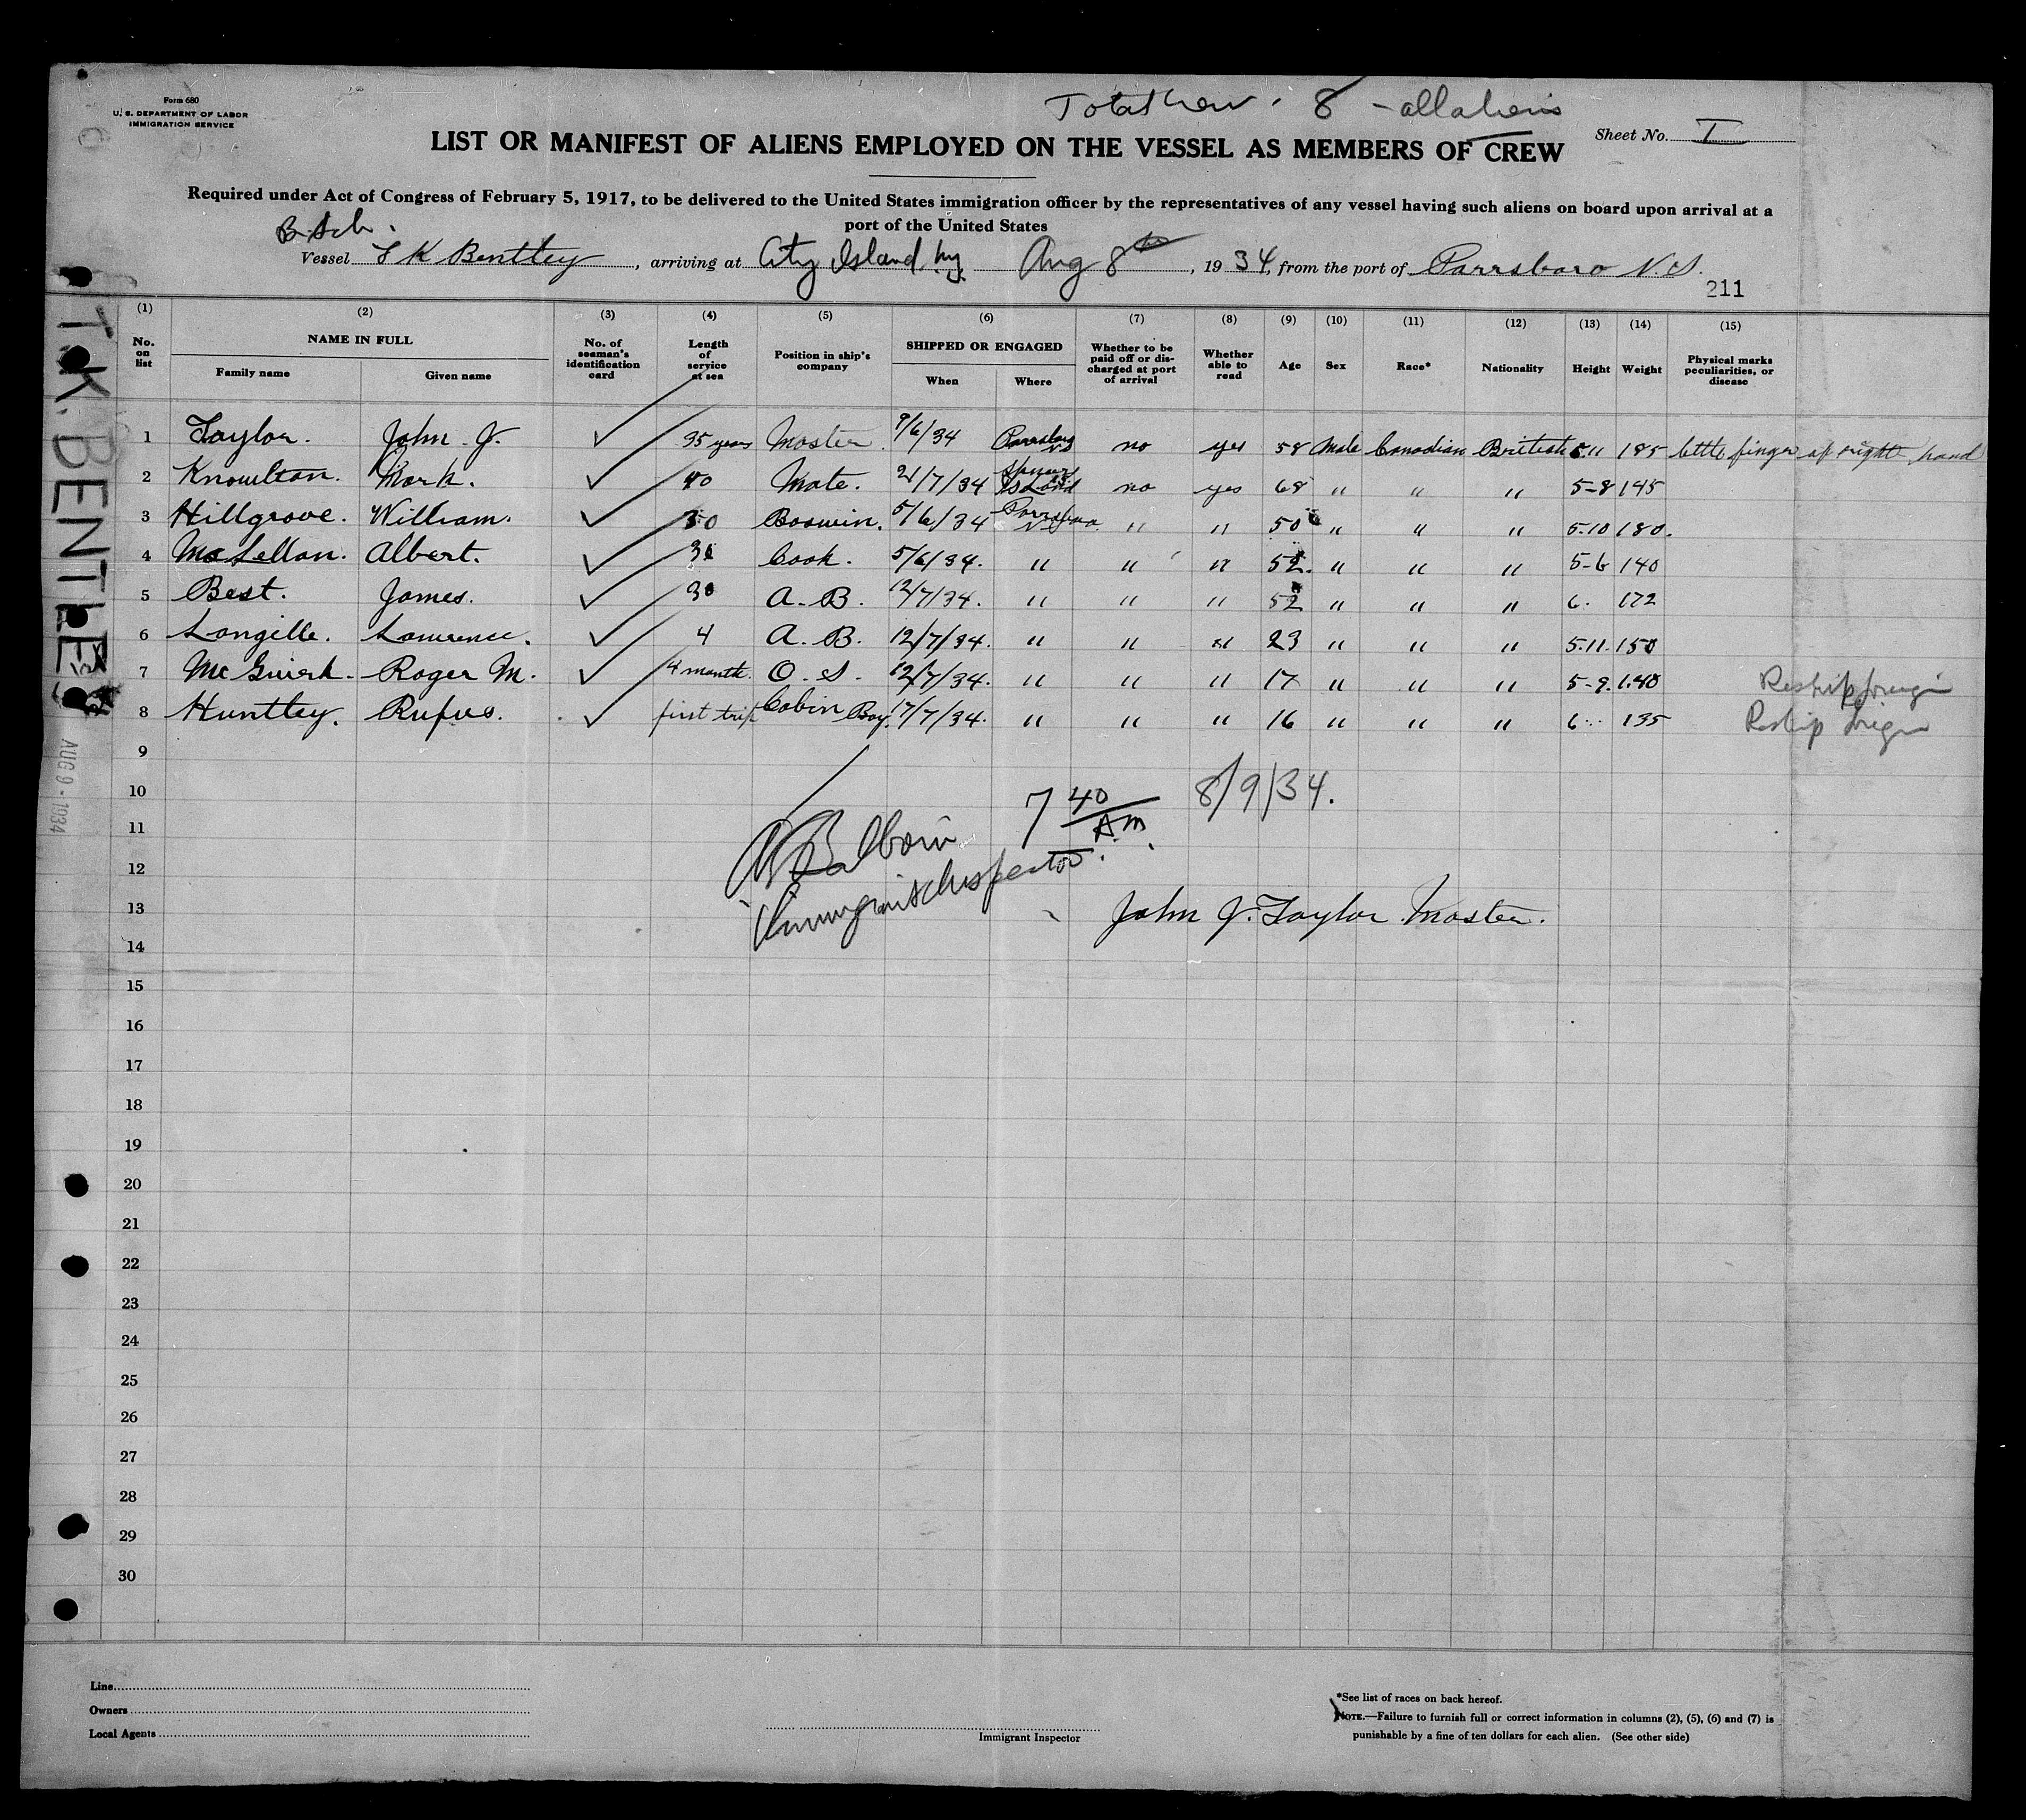 Form 680
U. S. DEPARTMENT OF LABOR
IMMIGRATION SERVICE
Total Crew - 8 - all aliens
Sheet No. I
LIST OR MANIFEST OF ALIENS EMPLOYED ON THE VESSEL AS MEMBERS OF CREW
Required under Act of Congress of February 5, 1917, to be delivered to the United States immigration officer by the representatives of any vessel having such aliens on board upon arrival at a
port of the United States
Br Sch.
Vessel T K Bentley, arriving at City Island, Ny Aug 8th, 1934, from the port of Parrsboro N.S.
211
(1) (2) (3) (4) (5) (6) (7) (8) (9) (10) (11) (12) (13) (14) (15)
No. on list NAME IN FULL Family name Given name No. of seaman's identification card Length of service at sea Position in ship's company SHIPPED OR ENGAGED When Where Whether to be paid off or discharged at port of arrival Whether able to read Age Sex Race* Nationality Height Weight Physical marks peculiarities, or disease
1 Taylor. John J. ✓ 35 years Master 9/6/34 Parrsboro NS no yes 58 Male Canadian British 5.11 185 little finger of right hand
2 Knowlton. Mark. ✓ 40 Mate. 21/7/34 Spencers Island no yes 68 " " " 5-8 145
3 Hillgrove. William. ✓ 30 Boswin. 5/6/34 Parrsboro N.S. " " 50 " " " 5.10 180.
4 McLellan. Albert. ✓ Cook. 5/6/34. " " " 52. " " " 5-6 140
5 Best. James. ✓ 30 A. B. 12/7/34. " " " 52 " " " 6. 172
6 Langille. Lawrence. ✓ 4 A. B. 12/7/34. " " " 23 " " " 5.11. 150
7 McGuirk. Roger M. ✓ 4 month. O. S. 12/7/34. " " " 17 " " " 5-9. 140 Reship foreign
8 Huntley. Rufus. ✓ first trip Cabin Boy. 17/7/34. " " " 16 " " " 6. 135 Reship foreign
9
10
11
12
13
14
15
16
17
18
19
20
21
22
23
24
25
26
27
28
29
30
7 40 AM. 8/9/34.
Immigrant Inspector.
John J. Taylor Master.
T.K. BENTLEY
AUG 9 - 1934
Line
Owners
Local Agents
Immigrant Inspector
*See list of races on back hereof.
NOTE.—Failure to furnish full or correct information in columns (2), (5), (6) and (7) is
punishable by a fine of ten dollars for each alien. (See other side)